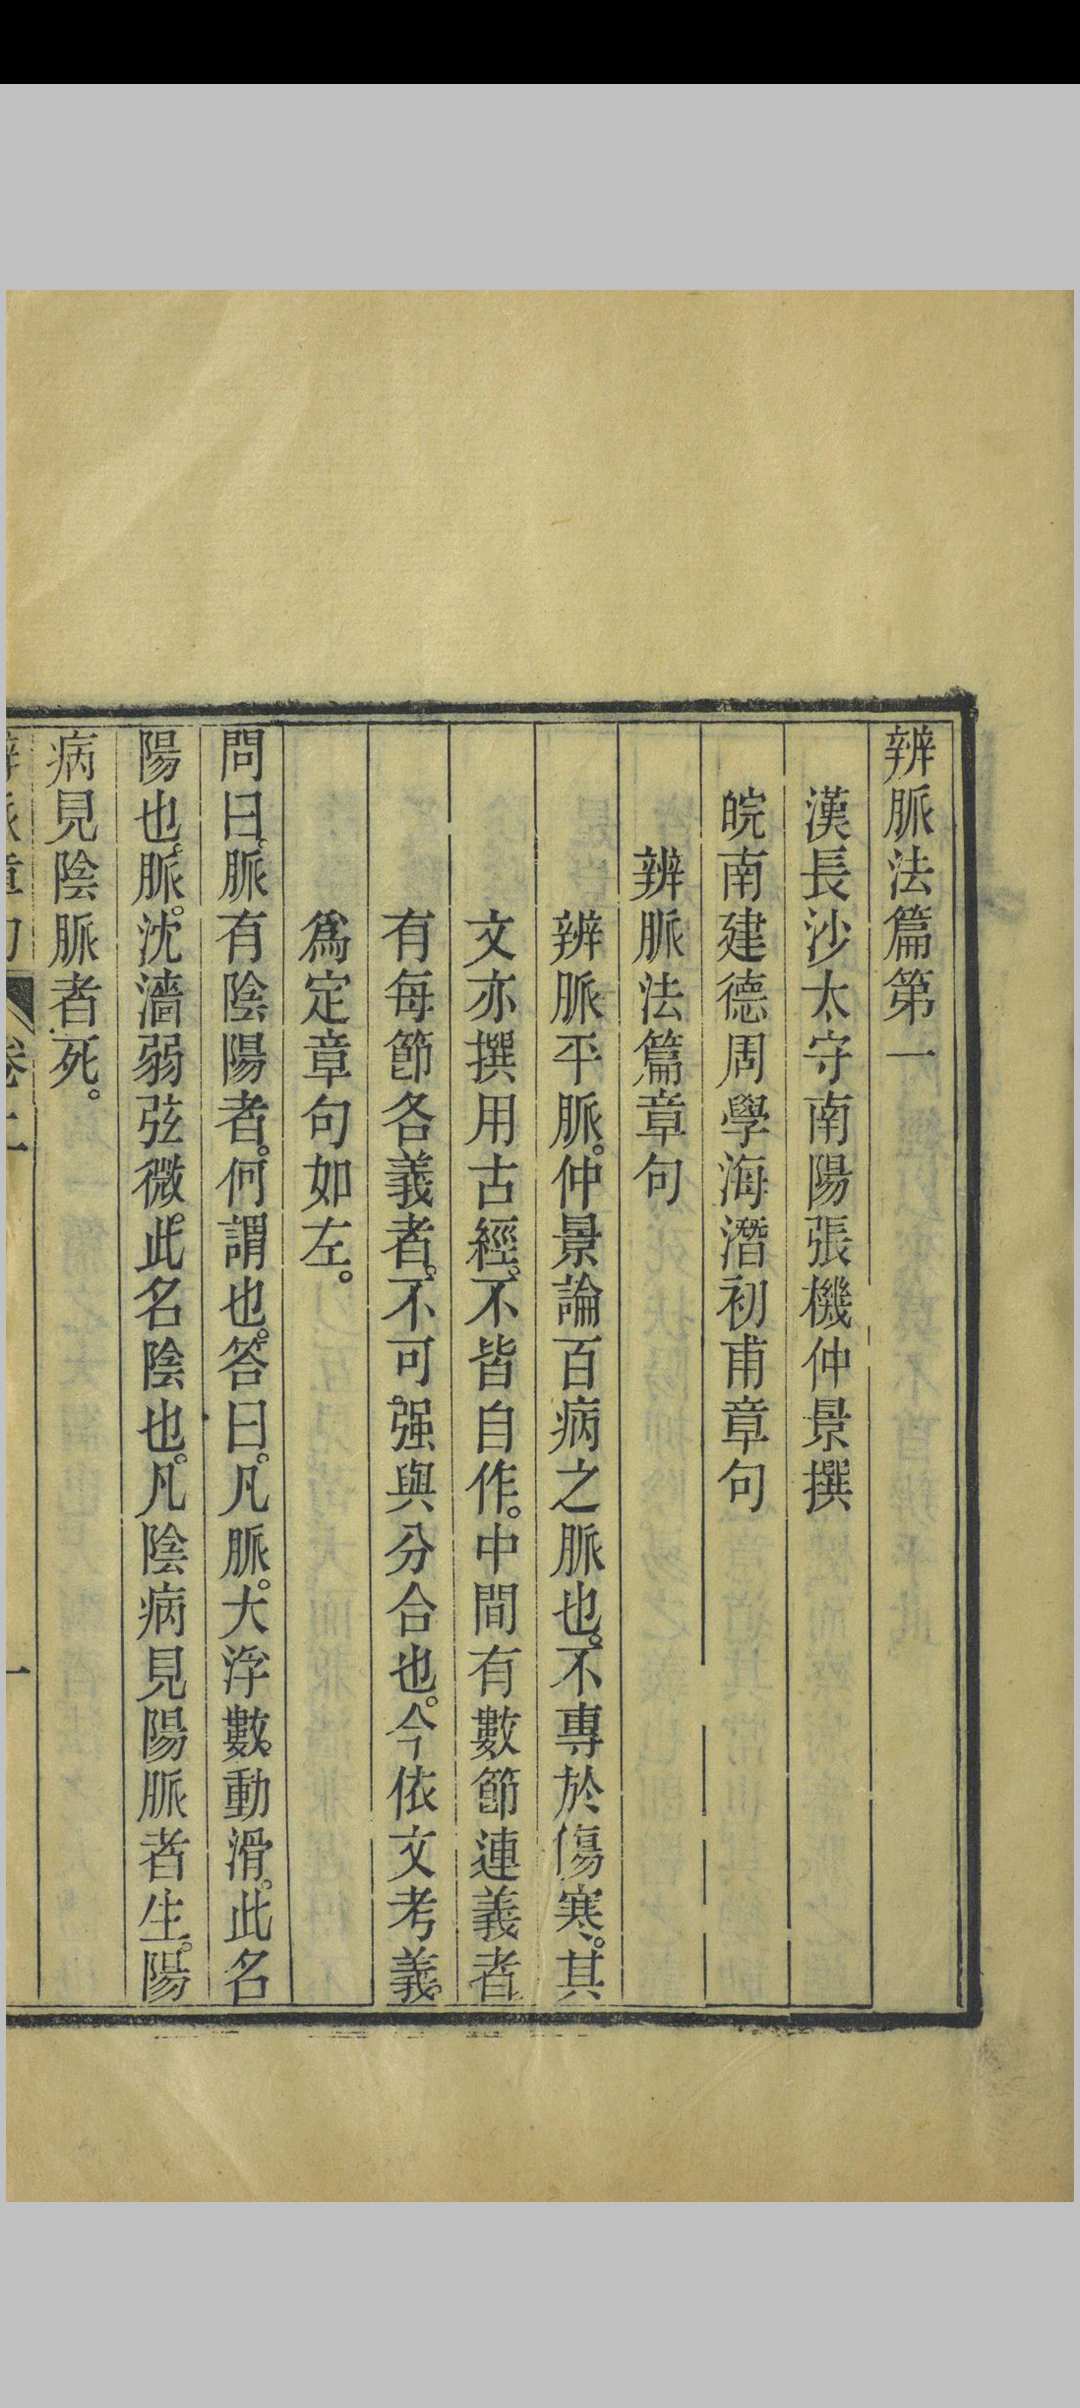 辨脈法篇第一
漢長沙太守南陽張機仲景撰
皖南建德周學海潛初甫章句
辨脈法篇章句
辨脈平脈。仲景論百病之脈也。不專於傷寒。其
文亦撰用古經。不皆自作。中間有數節連義者
有每節各義者。不可强與分合也。今依文考義。
爲定章句如左。
問曰。脈有陰陽者。何謂也。答曰。凡脈。大浮數。動滑。此名
陽也。脈。沈濇弱弦微。此名陰也。凡陰病見陽脈者生。陽
病見陰脈者死。
辨脈章句 卷上 一